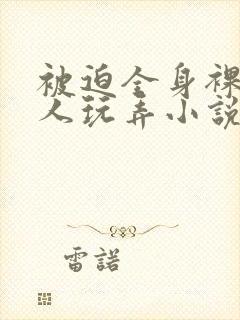 被迫全身裸
人玩弄小説
雷諾